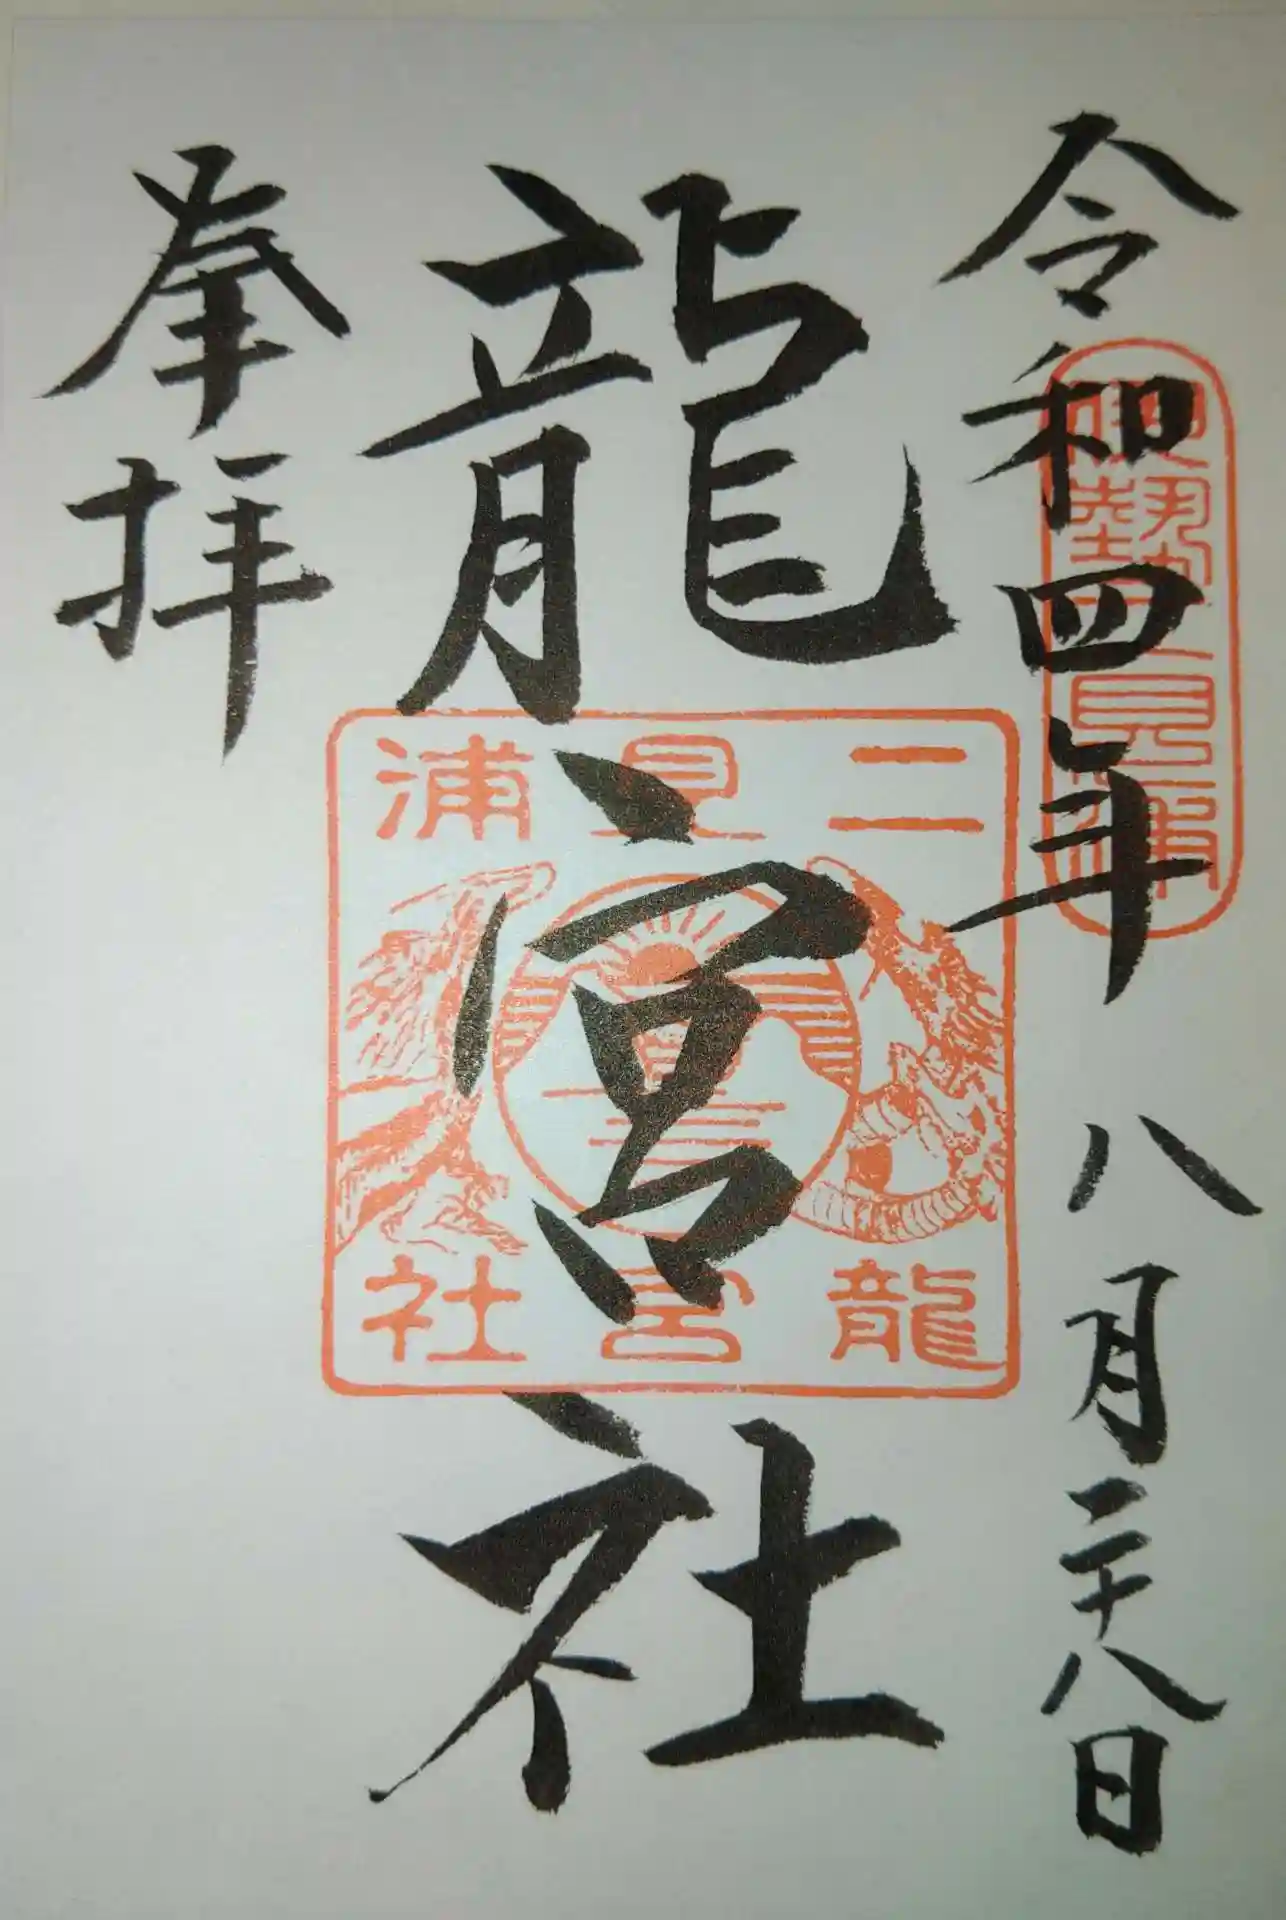 令和四年八月二十八日
伊勢二見浦
龍宮社
二見浦
龍宮社
奉拝